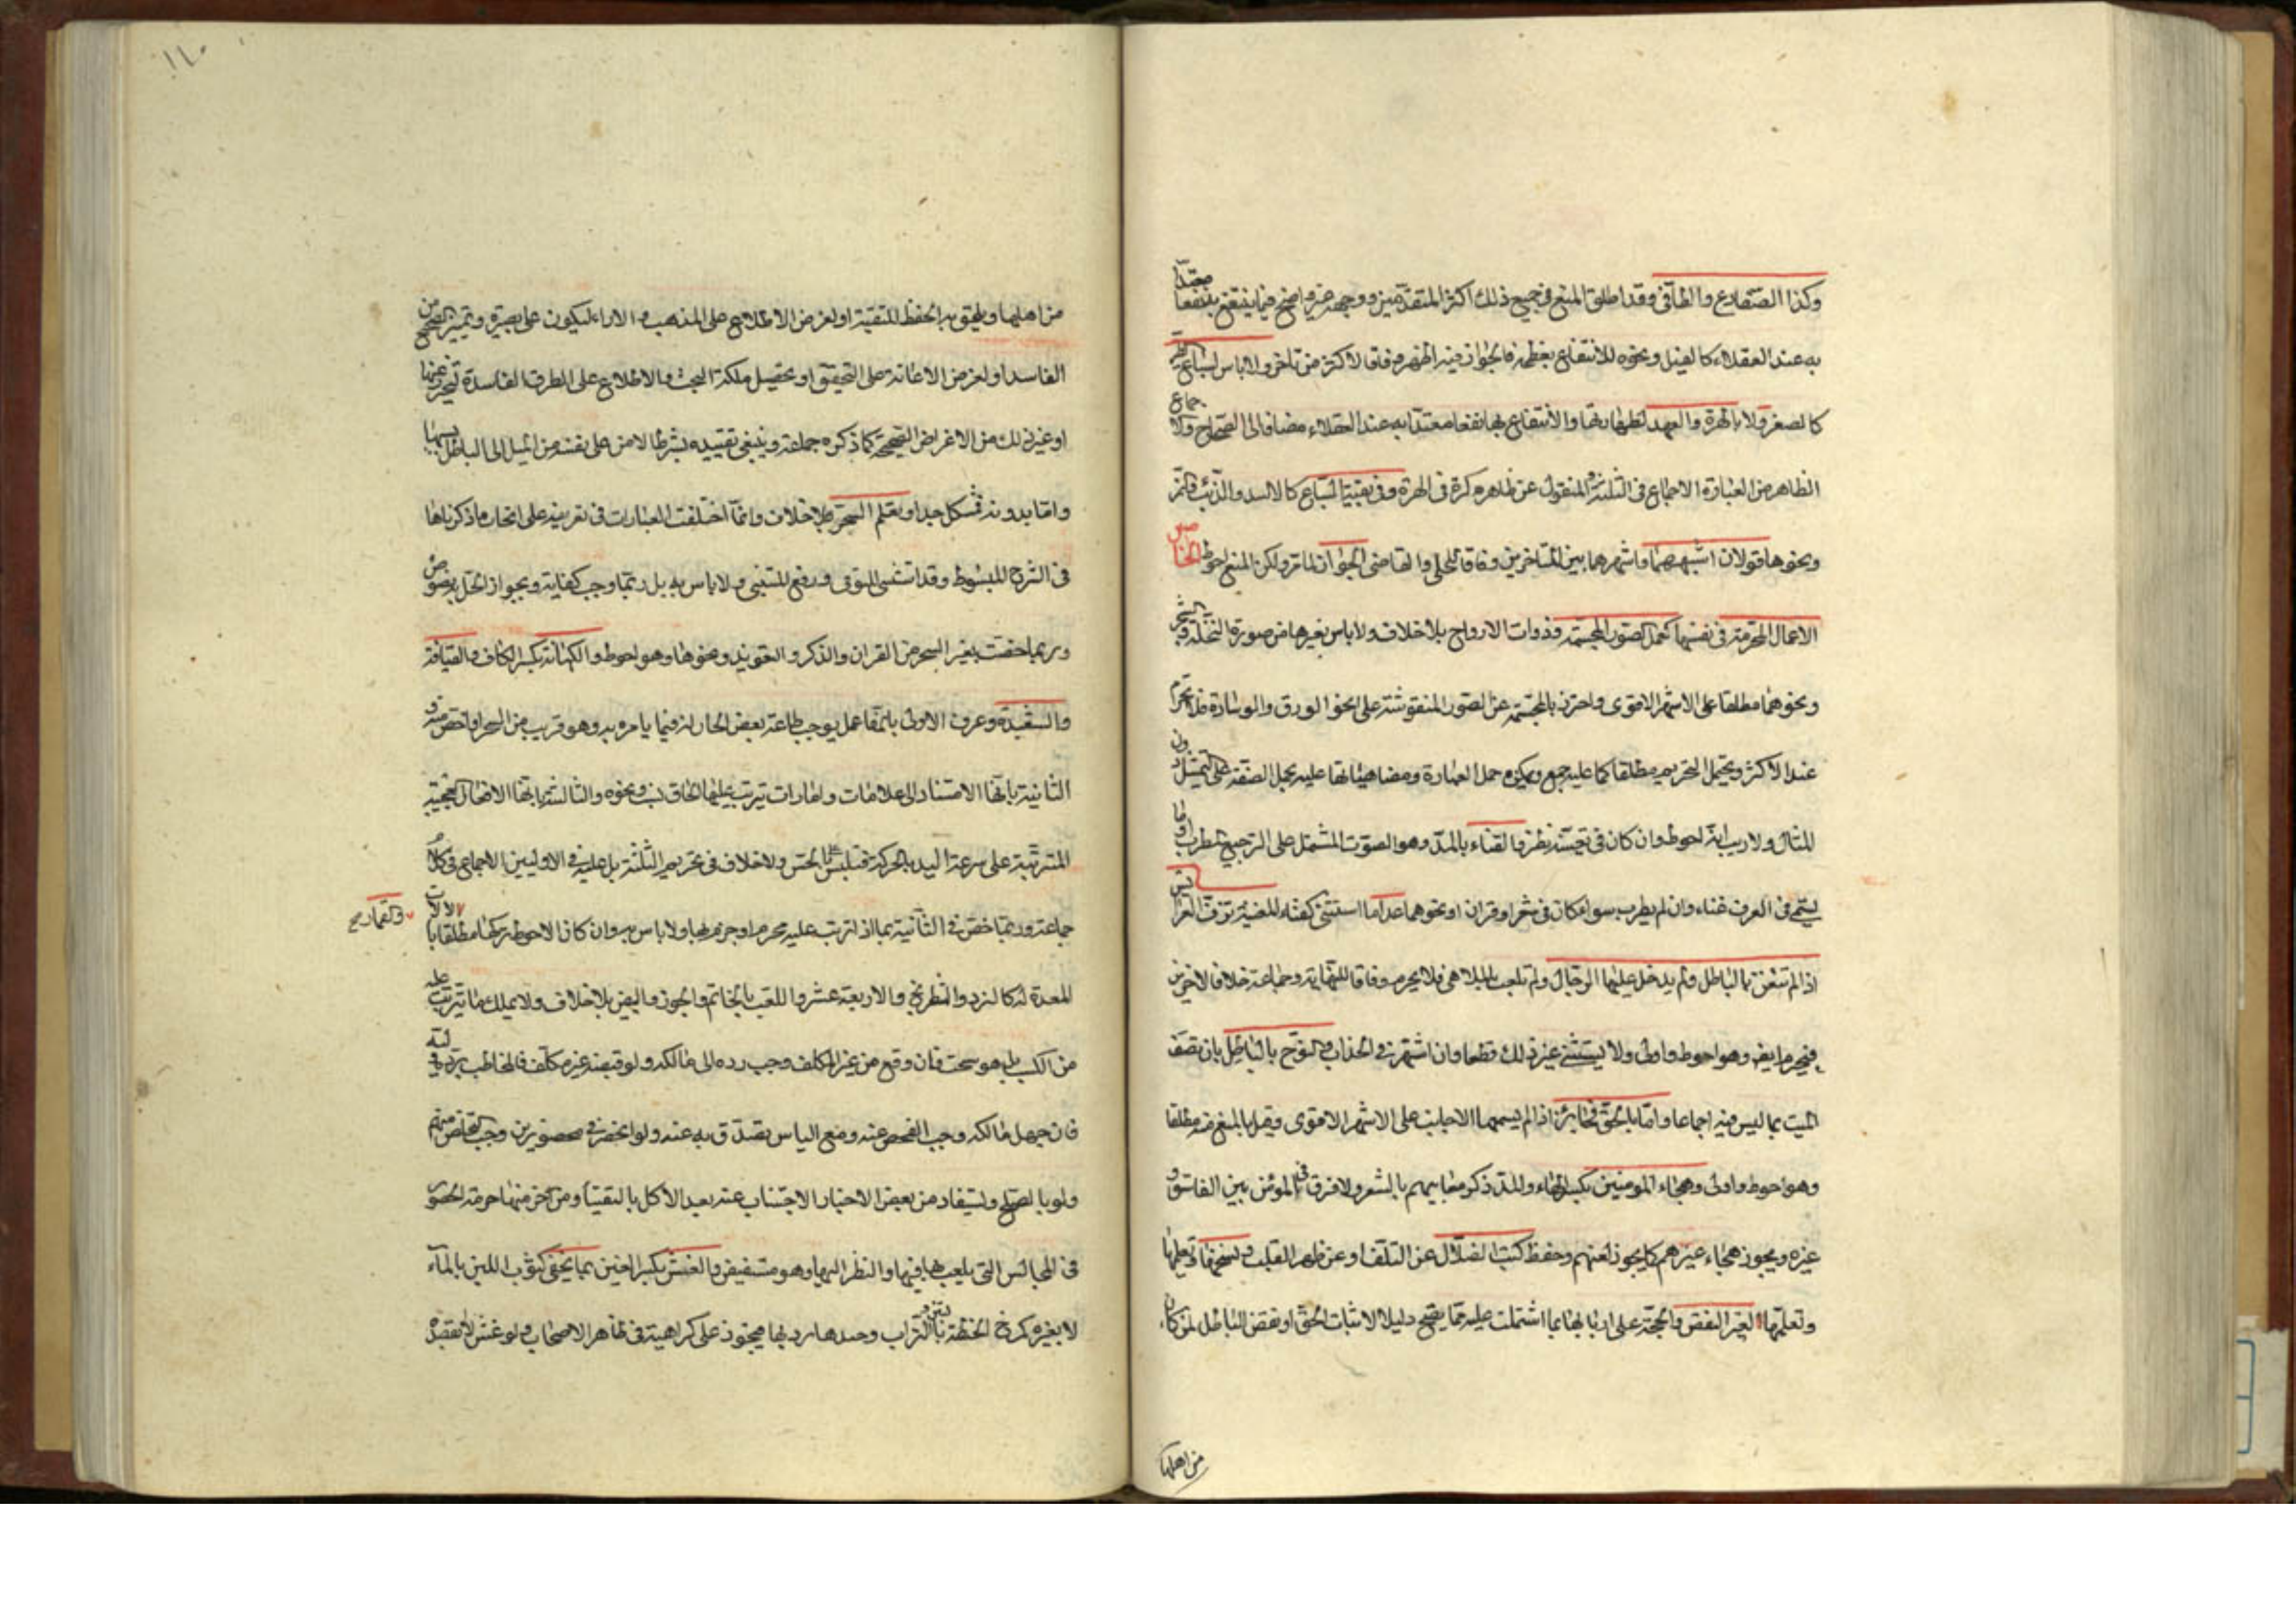 وكذا الضفادع والطافي وقد اطلق المنع في جميع ذلك اكثر المتقدمين ووجهه غير واضح فيما ينتفع به نفعا معتدا
به عند العقلاء كالفيل ونحوه للانتفاع بعظمه فالجواز فيه اظهر وفاقا لاكثر من تاخر ولا باس بسباع الطير
كالصقر ولا بالهرة والفهد لطهارتها والانتفاع بها نفعا معتدا به عند العقلاء مضافا الى الصحاح والاجماع
الظاهر من العبارة الاجماع في التذكرة المنقول عن ظاهره كرة في الهرة وفي بقية السباع كالاسد والذئب والنمر
ونحوها قولان اشبههما واشهرهما بين المتاخرين وفاقا للحلي والقاضي الجواز لما مر ولكن المنع احوط الخامس
الاعمال المحرمة في نفسها كعمل الصور المجسمة وذوات الارواح بلا خلاف ولا باس بغيرها من صورة النخلة والشجر
ونحوهما مطلقا على الاشهر الاقوى واحترز بالمجسمة عن الصور المنقوشة على نحو الورق والوسادة فلا تحرم
عند الاكثر ويحتمل التحريم مطلقا كما عليه جمع ويمكن حمل العبارة ومضاهياتها عليه بجعل الصفة على الممثل دون
المثال ولا ريب انه احوط وان كان في تعينه نظر والغناء بالمد وهو الصوت المشتمل على الترجيع المطرب او ما
يسمى في العرف غناء وان لم يطرب سواء كان في شعر او قران او نحوهما عدا ما استثنى كغناء المغنية تزف العرائس
اذا لم تتغن بالباطل ولم يدخل عليها الرجال ولم تلعب بالملاهي فلا يحرم وفاقا للنهاية وجماعة خلافا لاخرين
فيحرم ايضا وهو احوط واولى ولا يستثنى غير ذلك قطعا وان اشتهر في الحداء والنوح بالباطل بان تصف
الميت بما ليس فيه اجماعا واما بالحق فجائز اذا لم يسمعها الاجانب على الاشهر الاقوى وقيل بالمنع منه مطلقا
وهو احوط واولى وهجاء المومنين بكسر الهاء والمد ذكر معايبهم بالشعر ولا فرق في المؤمن بين الفاسق و
غيره ويجوز هجاء غيرهم كما يجوز لعنهم وحفظ كتب الضلال عن التلف او عن ظهر القلب ونسخها وتعليمها
وتعلمها لغير النقض والحجة على اربابها بما اشتملت عليه مما يصلح دليلا لاثبات الحق او نقض الباطل لمن كان
من اهلها
١٦٠
من اهلها ويلحق به الحفظ للتقية او لغرض الاطلاع على المذهب والاراء ليكون على بصيرة وتمييز الصحيح من
الفاسد او لغرض الاعانة على التحقيق او تحصيل ملكة البحث والاطلاع على الطرق الفاسدة ليتحرز عنها
او غير ذلك من الاغراض الصحيحة كما ذكره جماعة وينبغي تقييده بشرط الامن على نفسه من الميل الى الباطل بسببها
واما بدونه فمشكل جدا وتعلم السحر بلا خلاف وانما اختلفت العبارات في تعريفه على انحاء ما ذكرناها
في الشرح المبسوط وقد استثنى للتوقي ودفع المتنبي ولا باس به بل ربما وجب كفاية وبجواز الحل به نصوص
وربما خصت بغير السحر من القران والذكر والتعويذ ونحوها وهو احوط والكهانة بكسر الكاف والقيافة
والشعبدة وعرف الاولى بانها عمل يوجب طاعة بعض الجان له فيما يامره به وهو قريب من السحر او اخص منه و
الثانية بانها الاستناد الى علامات وامارات يترتب عليها الحاق نسب ونحوه والثالثة بانها الافعال العجيبة
المترتبة على سرعة اليد بالحركة فتلبس على الحس ولا خلاف في تحريم الثلثة بل عليه في الاوليين الاجماع في كلام
جماعة وربما خص في الثانية بما اذا ترتب عليه محرم او جزم بها ولا باس به وان كان الاحوط تركها مطلقا بالالات
والقمار صح
المعدة له كالنرد والشطرنج والاربعة عشر واللعب بالخاتم والجوز والبيض بلا خلاف ولا يملك ما يترتب عليه
من الكسب بل هو سحت فان وقع من غير المكلف وجب رده الى مالكه ولو قبضه غير مكلف فالمخاطب برده وليه
فان جهل مالكه وجب الفحص عنه ومع الياس تصدق به عنه ولو انحصر في محصورين وجب التخلص منهم
ولو بالصلح ويستفاد من بعض الاخبار الاجتناب عنه بعد الاكل بالتقيأ ومن اخر منها حرمة الحضور
في المجالس التي يلعب بها فيها والنظر اليها وهو مستفيض والغش بكسر الغين بما يخفى كشوب اللبن بالماء
لا بغيره كمزج الحنطة بالتراب وجيدها برديها فيجوز على كراهية في ظاهر الاصحاب ولو غش لا بقصده